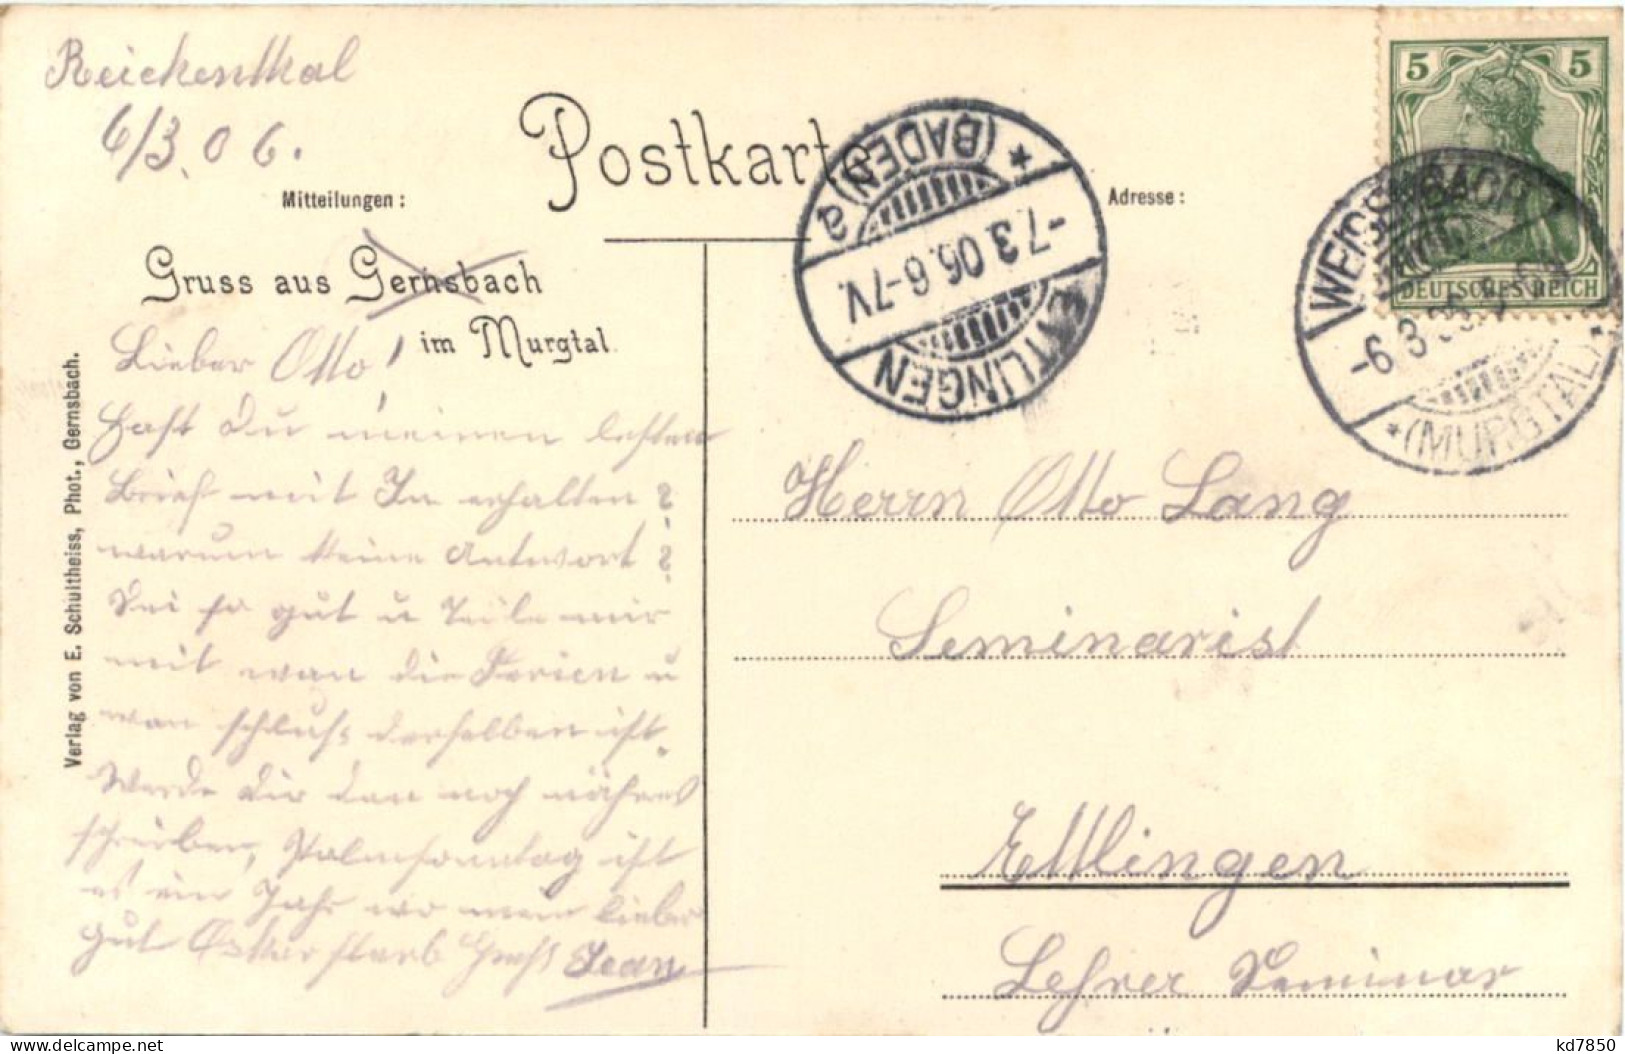 Reickenthal
6/3. 06.
Postkarte
Mitteilungen:
Adresse:
Gruss aus Gernsbach
im Murgtal.
Verlag von E. Schultheiss, Phot., Gernsbach.
Lieber Otto!
Hast Du meinen lesten
Brief mit In erhalten?
warum keine Antwort?
Sei so gut u Teile mir
mit wan die Ferien u
wan schluss derselben ist.
Werde Dir dan noch näheres
schreiben, Palmsonntag ist
es ein Jahr wo mein lieber
gut Oskar starb Gruss Jean
ETTLINGEN
(BADEN) a
-7.3.06.6-7V.
5 5
DEUTSCHES REICH
WEISENBACH
(MURGTAL)
-6.3.
Herrn Otto Lang
Seminarist
Ettlingen
Lehrer Seminar
kd7850